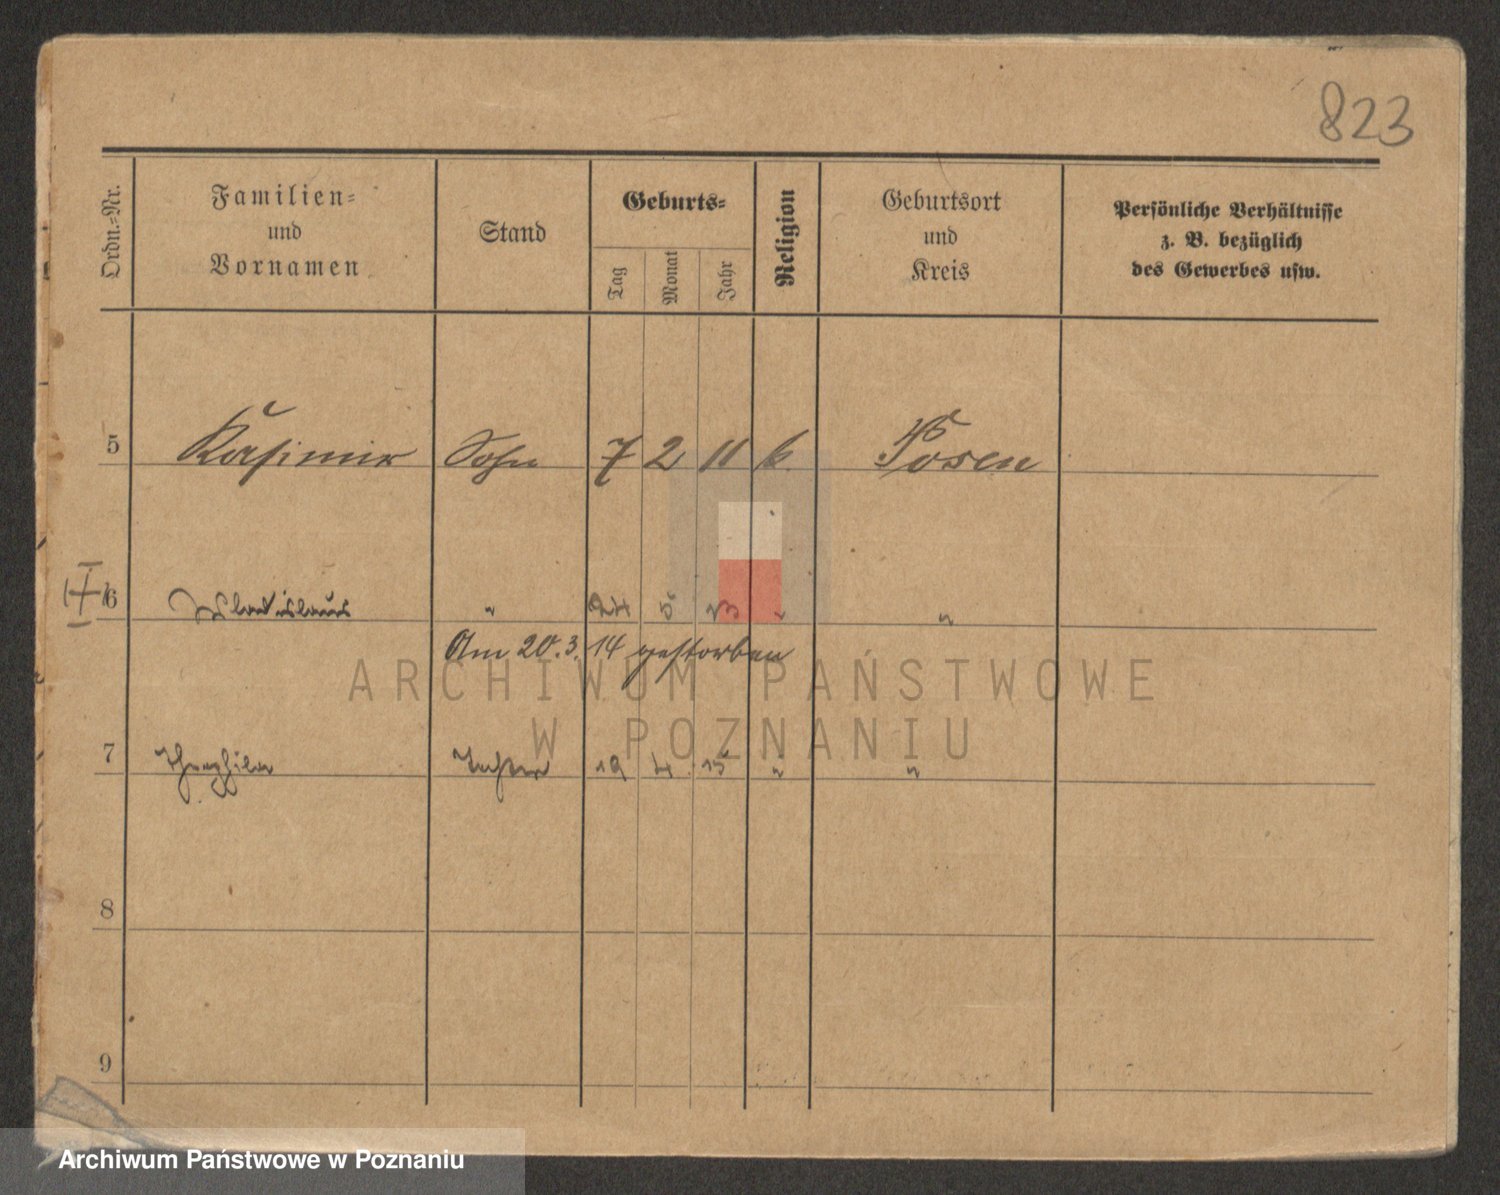 823
Ordn.-Nr.
Familien-
und
Vornamen
Stand
Geburts-
Tag
Monat
Jahr
Religion
Geburtsort
und
Kreis
Persönliche Verhältnisse
z. B. bezüglich
des Gewerbes usw.
5 Kasimir Sohn 7 2 11 k. Posen
6 Wladislaus " 24 5 13 " "
Am 20.3.14 gestorben
ARCHIWUM PAŃSTWOWE
W POZNANIU
7 Theophila Tochter 19 4 15 " "
8
9
Archiwum Państwowe w Poznaniu